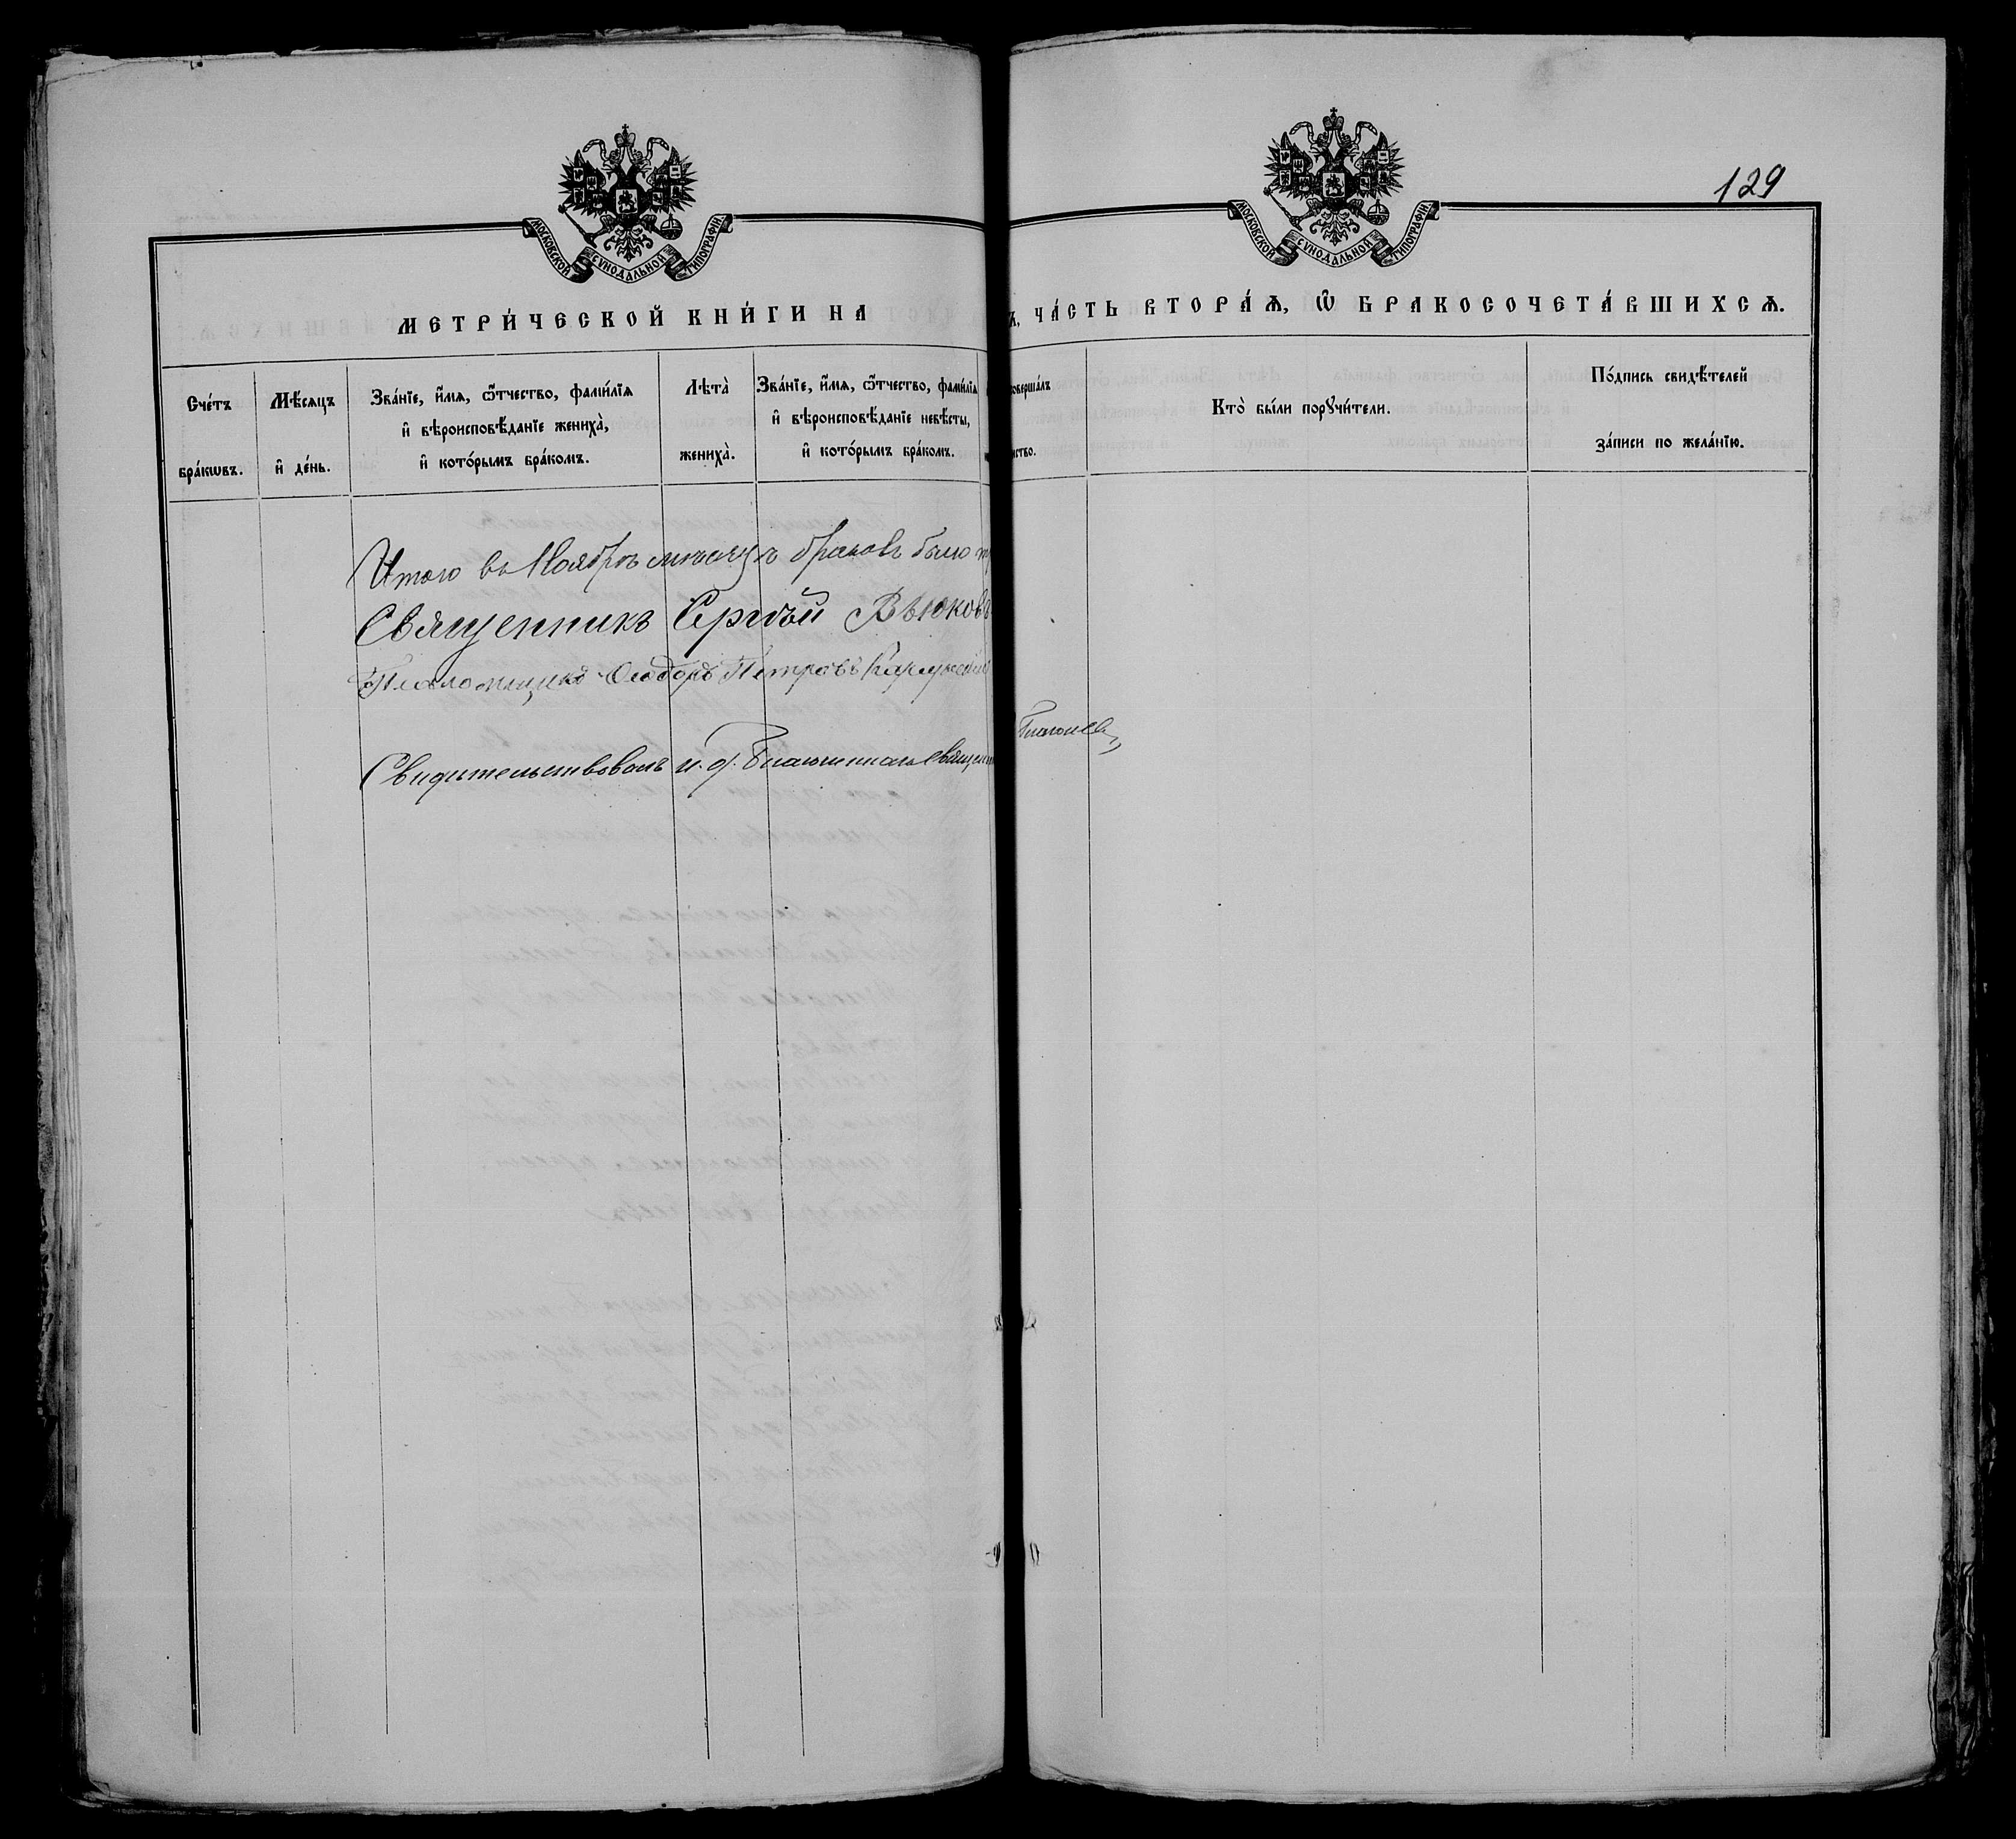 МОСКОВСКОЙ СУНОДАЛЬНОЙ ТИПОГРАФІИ.
МОСКОВСКОЙ СУНОДАЛЬНОЙ ТИПОГРАФІИ.
129
МЕТРИ́ЧЕСКОЙ КНИ́ГИ НА
Ъ, ЧА́СТЬ ВТОРА́Ѧ, Ѿ БРАКОСОЧЕТА́ВШИХСѦ.
Сче́тъ бра́кѡвъ.
Мѣ́сяцъ и҆ де́нь.
Зва́нїе, и҆́мя, ѻ҆́тчество, фами́лїя
и҆ вѣроисповѣ́данїе жениха̀,
и҆ кото́рымъ бра́комъ.
Лѣта̀ жениха̀.
Зва́нїе, и҆́мя, ѻ҆́тчество, фами́лїя
и҆ вѣроисповѣ́данїе невѣ́сты,
и҆ кото́рымъ бра́комъ.
соверша́лъ
нство.
Кто̀ бы́ли порꙋчи́тели.
По́дпись свидѣ́телей
за́писи по жела́нїю.
Итого въ Ноябрѣ мѣсяцѣ браковъ было
Священникъ Сергѣй Вьюковъ
Псаломщикъ Ѳеодоръ Петровъ
Свидѣтельствовалъ и. д. Благочиннаго Священн